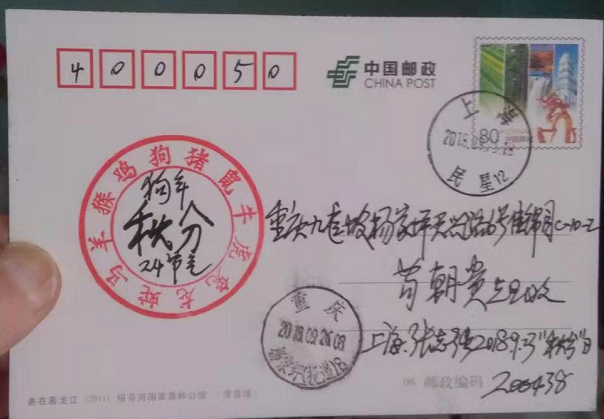 400050
中国邮政
CHINA POST
80
上海
2018.09.23.15
民星12
鼠牛虎兔龙蛇马羊猴鸡狗猪
狗年
秋分
24节气
重庆九龙坡杨家坪天兴路6号佳锦阁C-10-2
苟朝贵
收
上海:张志强2018.9.23"秋分"日
重庆
2018.09.26.08
杨家坪(投递)8
美在黑龙江 (2011) 桶子沟国家森林公园
08 邮政编码
200438